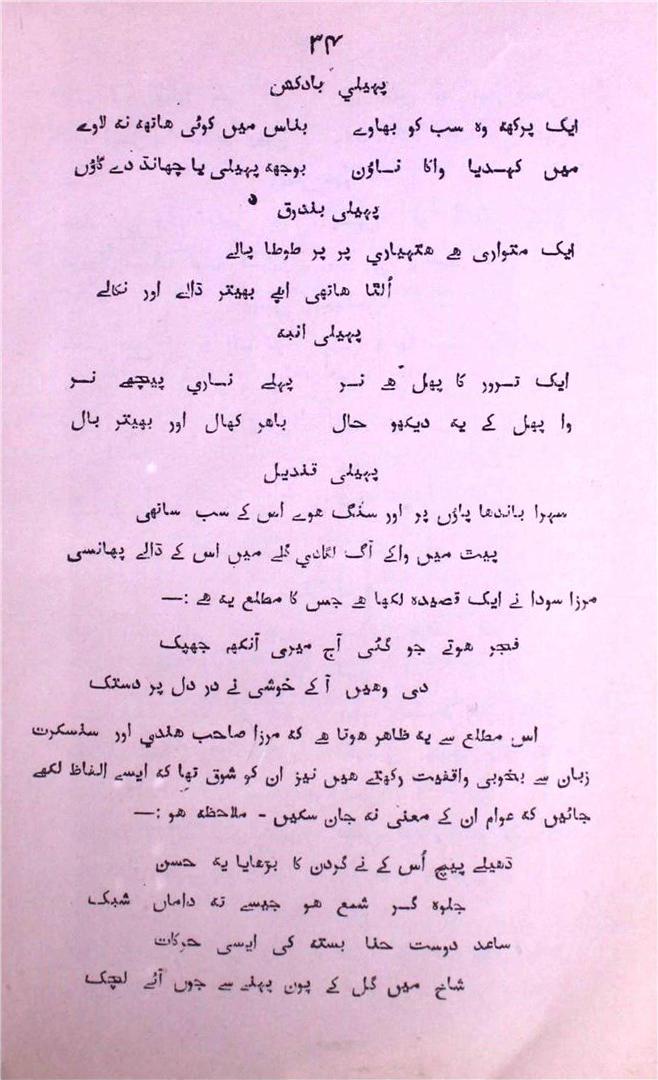 ۳۴
پہیلی بادکش
ایک پرکھہ وہ سب کو بھاوے بناس میں کوئی ہاتھہ نہ لاوے
میں کہدیا واکا ناؤن بوجھہ پہیلی یا چھانڈ دے گاؤں
پہیلی بندوق
ایک متواری ہے ہتہیاری پر پر طوطا پالے
اُلٹا ہاتھی اپنے بھیتر ڈالے اور نکالے
پہیلی انبہ
ایک ترور کا پھل ہے نر پہلے ناری پیچھے نر
وا پھل کے یہ دیکھو حال باہر کھال اور بھیتر بال
پہیلی قندیل
سہرا باندھا پاؤں پر اور سنگ ہوے اس کے سب ساتھی
پیٹ میں واکے آگ لگادی گلے میں اس کے ڈالے پھانسی
مرزا سودا نے ایک قصیدہ لکھا ہے جس کا مطلع یہ ہے :—
فجر ہوتے جو گئی آج میری آنکھہ جھپک
دی وہیں آکے خوشی نے در دل پر دستک
اس مطلع سے یہ ظاہر ہوتا ہے کہ مرزا صاحب ہندی اور سنسکرت
زبان سے بخوبی واقفیت رکھتے ہیں نیز ان کو شوق تھا کہ ایسے الفاظ لکھے
جائیں کہ عوام ان کے معنی نہ جان سکیں - ملاحظہ ہو :—
ڈھیلے پیچ اُس کے نے گردن کا بڑھایا یہ حسن
جلوہ گر شمع ہو جیسے تہ داماں شبک
ساعد دوست حنا بستہ کی ایسی حرکات
شاخ میں گل کے پون پہلے سے جوں آئے لچک